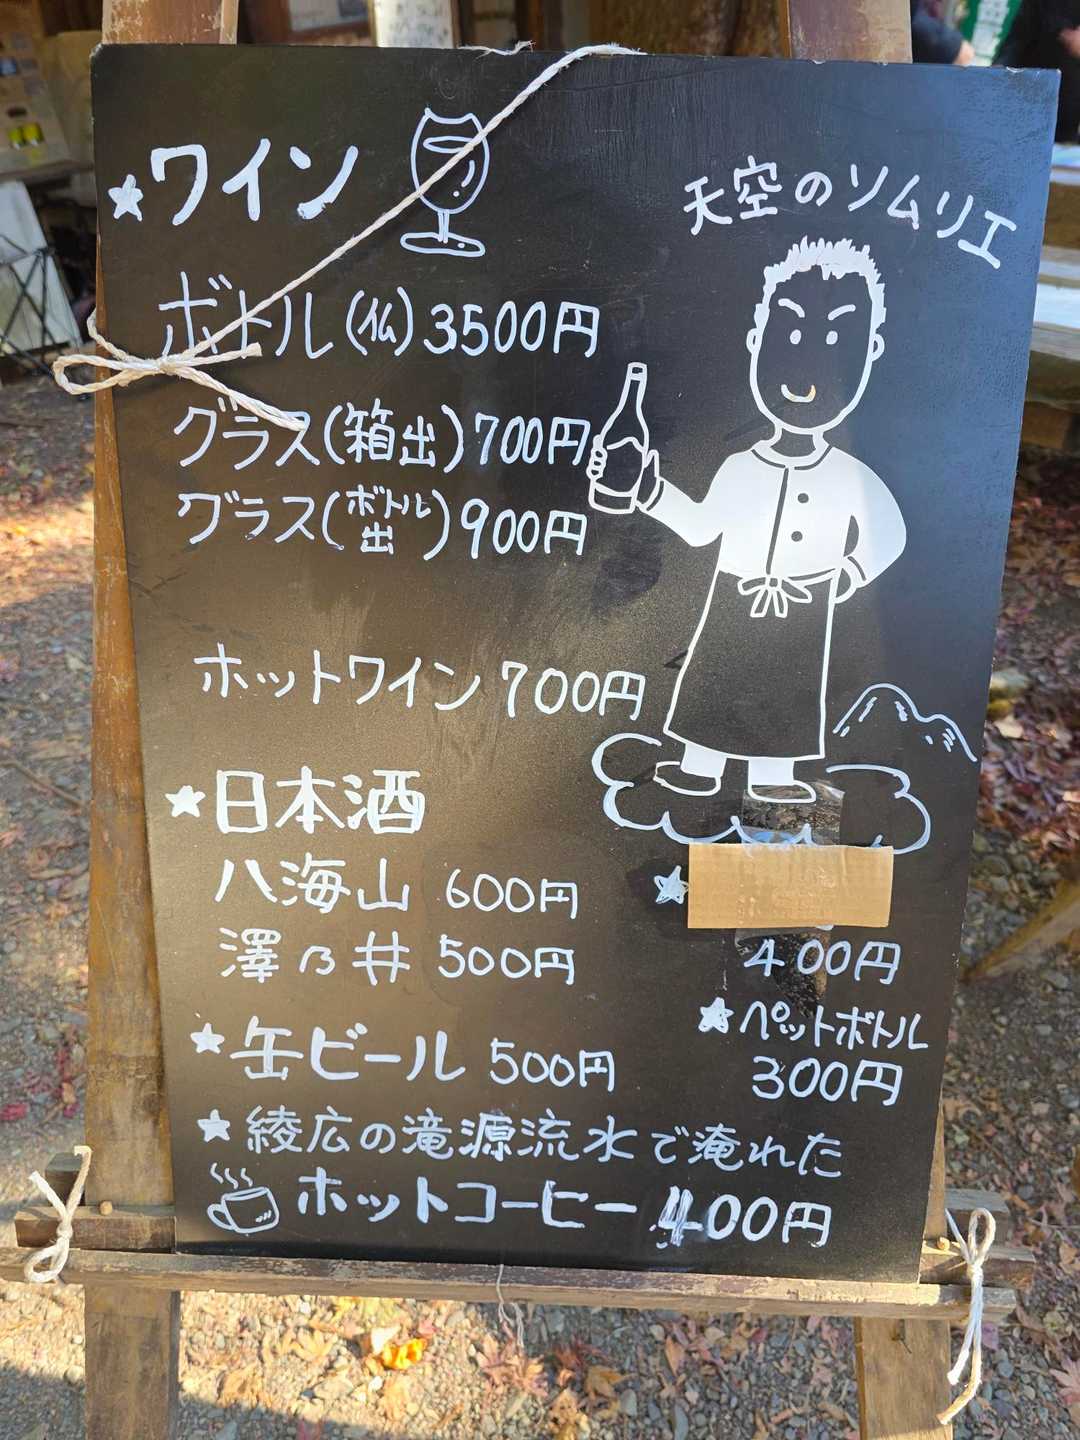 ★ワイン
天空のソムリエ
ボトル(仏)3500円
グラス(箱出)700円
グラス(ボトル出)900円
ホットワイン 700円
★日本酒
八海山 600円
澤乃井 500円
★
400円
★缶ビール 500円
★ペットボトル
300円
★綾広の滝源流水で淹れた
ホットコーヒー 400円